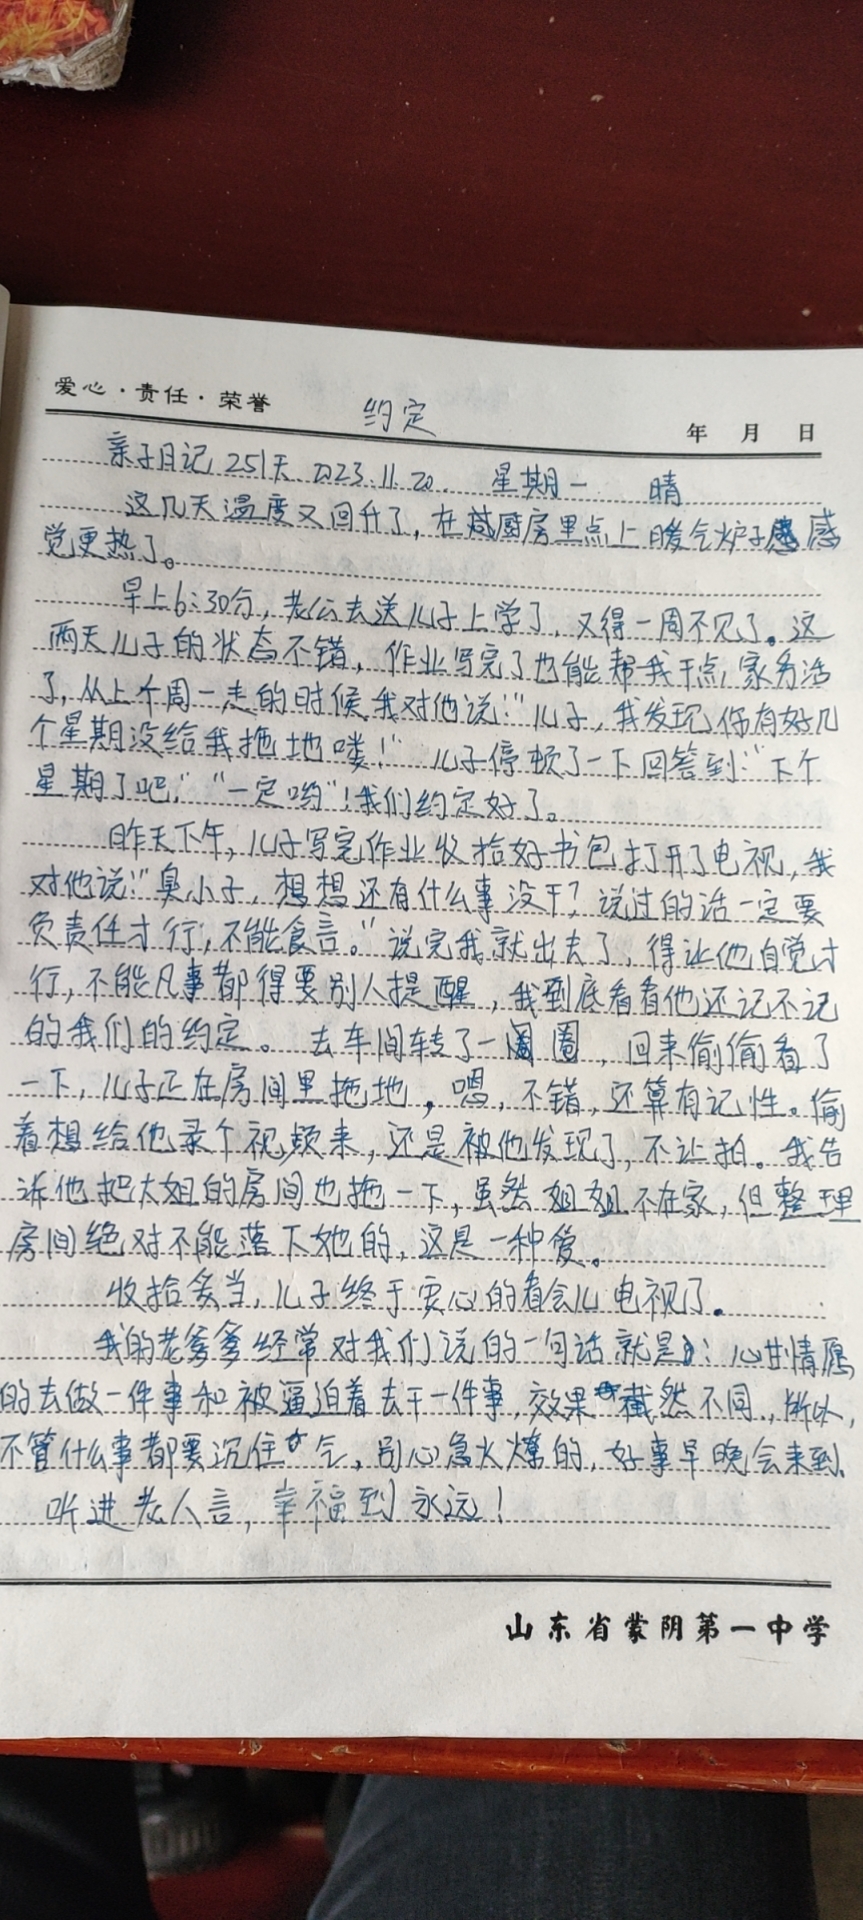 爱心·责任·荣誉
约定
年 月 日
亲子日记251天 2023.11.20. 星期一 晴
这几天温度又回升了,在厨房里点上暖气炉子感
觉更热了。
早上6:30分,老公去送儿子上学了,又得一周不见了。这
两天儿子的状态不错,作业写完了也能帮我干点家务活
了,从上个周一走的时候我对他说:"儿子,我发现你有好几
个星期没给我拖地喽!"儿子停顿了一下回答到:"下个
星期了吧","一定哟"!我们约定好了。
昨天下午,儿子写完作业收拾好书包打开了电视,我
对他说:"臭小子,想想还有什么事没干?说过的话一定要
负责任才行,不能食言。"说完我就出去了,得让他自觉才
行,不能凡事都得要别人提醒,我到底看看他还记不记
的我们的约定。去车间转了一圈,回来偷偷看了
一下,儿子正在房间里拖地,嗯,不错,还算有记性。偷
着想给他录个视频来,还是被他发现了,不让拍。我告
诉他把大姐的房间也拖一下,虽然姐姐不在家,但整理
房间绝对不能落下她的,这是一种爱。
收拾妥当,儿子终于安心的看会儿电视了。
我的老爹爹经常对我们说的一句话就是:心甘情愿
的去做一件事和被逼迫着去干一件事,效果截然不同,所以,
不管什么事都要沉住气,别心急火燎的,好事早晚会来到,
听进老人言,幸福到永远!
山东省蒙阴第一中学